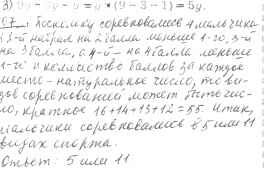 3) 9y - 3y - y = y * (9 - 3 - 1) = 5y.
С7. Поскольку соревновались 4 мальчика
2-й набрал на 2 балла меньше 1-го, 3-й
на 3 балла, а 4-й - на 4 балла меньше
1-го и количество баллов за каждое
место - натуральное число, то ви-
дов соревнований может быть чис-
ло, кратное 16+14+13+12=55. Итак,
мальчики соревновались в 5 или 11
видах спорта.
Ответ: 5 или 11